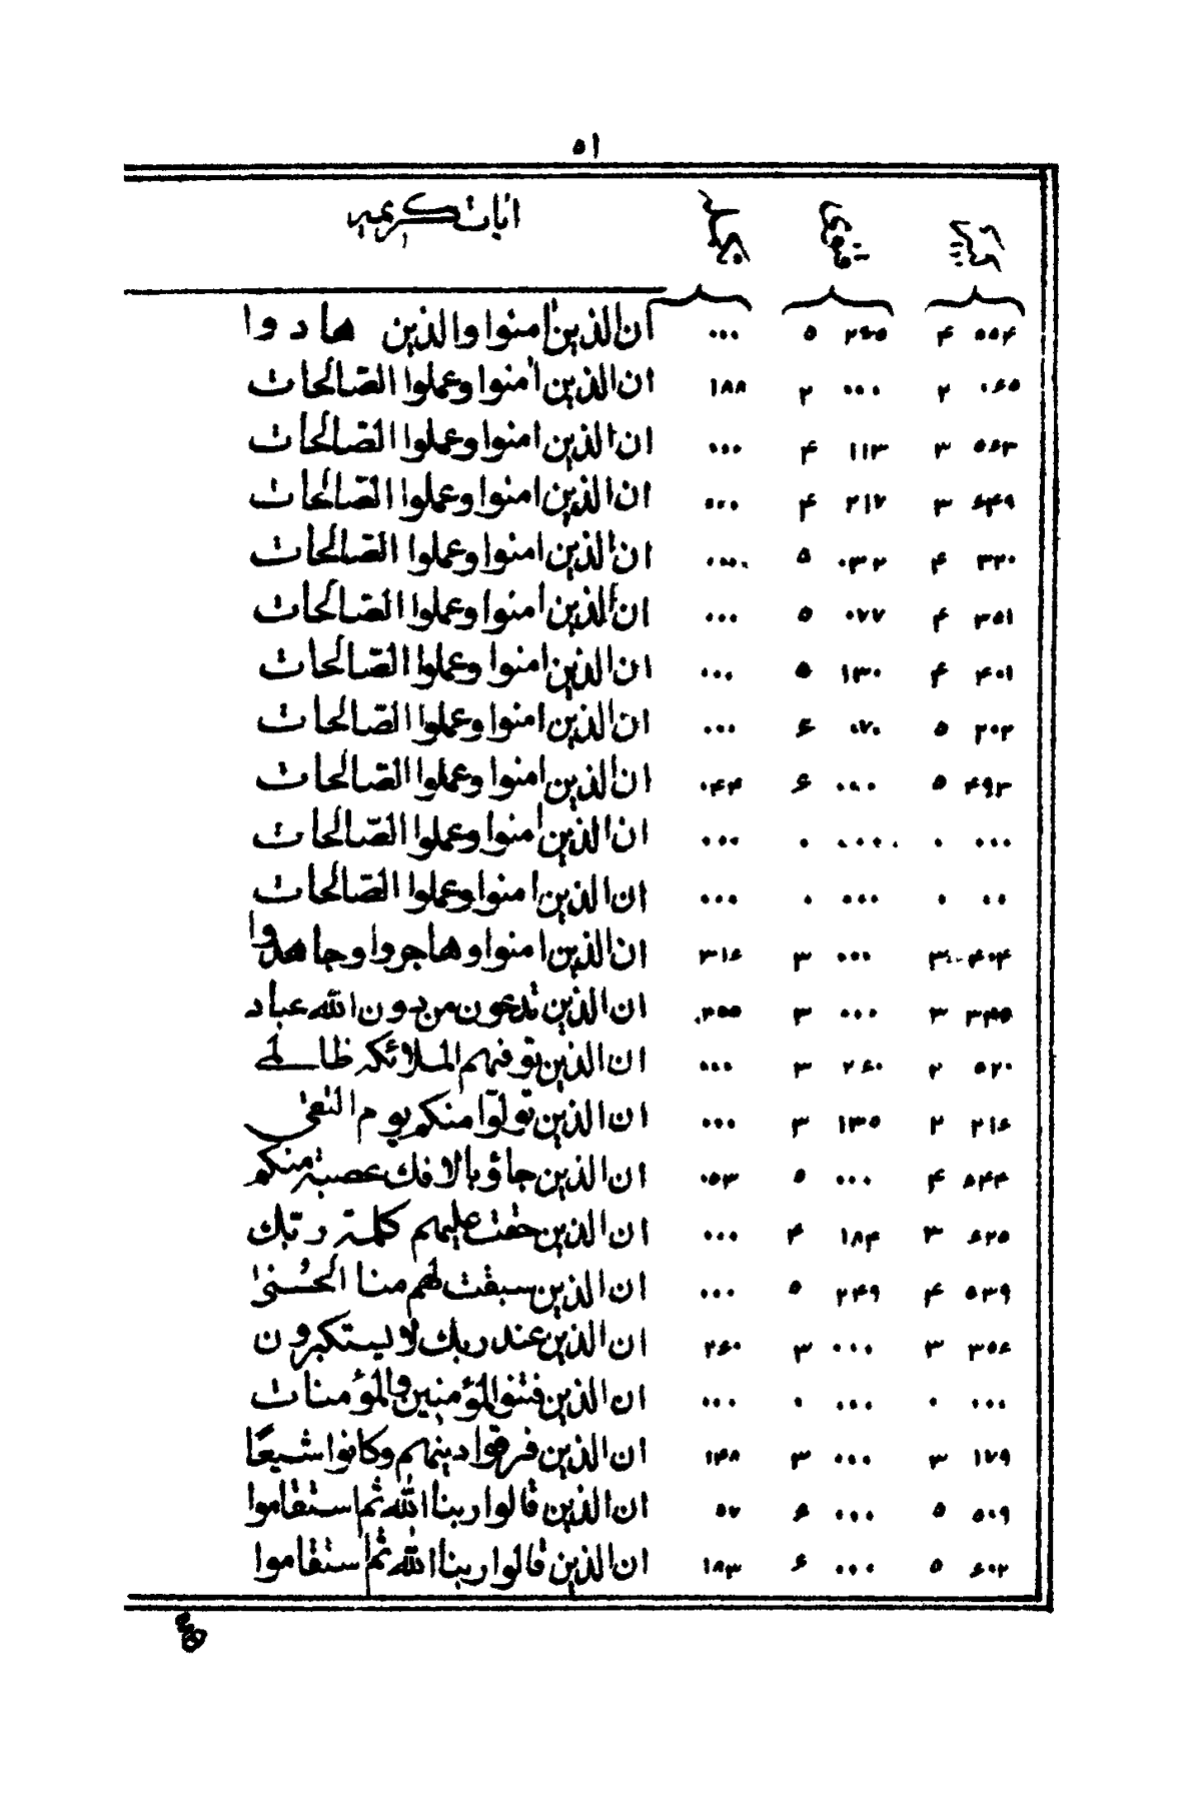 ۵۱
اٰيات كريميه
۵۵۴ ۴ ۲۶۵ ۵ ۰۰۰ ان الذين امنوا والذين هادوا
۰۶۵ ۲ ۰۰۰ ۲ ۱۸۸ ان الذين امنوا وعملوا الصّالحات
۵۶۳ ۳ ۱۱۳ ۴ ۰۰۰ ان الذين امنوا وعملوا الصّالحات
۶۴۹ ۳ ۲۱۷ ۴ ۰۰۰ ان الذين امنوا وعملوا الصّالحات
۳۲۰ ۴ ۰۳۲ ۵ ۰۰۰ ان الذين امنوا وعملوا الصّالحات
۳۵۱ ۴ ۰۷۷ ۵ ۰۰۰ ان الذين امنوا وعملوا الصّالحات
۴۰۱ ۴ ۱۳۰ ۵ ۰۰۰ ان الذين امنوا وعملوا الصّالحات
۲۰۲ ۵ ۰۷۰ ۶ ۰۰۰ ان الذين امنوا وعملوا الصّالحات
۴۹۳ ۵ ۰۰۰ ۶ ۰۴۴ ان الذين امنوا وعملوا الصّالحات
۰۰۰ ۰ ۰۰۰ ۰ ۰۰۰ ان الذين امنوا وعملوا الصّالحات
۰۰ ۰ ۰۰۰ ۰ ۰۰۰ ان الذين امنوا وعملوا الصّالحات
۴۰۴ ۳ ۰۰۰ ۳ ۳۱۶ ان الذين امنوا وهاجروا وجاهدوا
۳۴۵ ۳ ۰۰۰ ۳ ۲۵۵ ان الذين تدعون من دون الله عباد
۵۲۰ ۲ ۲۶۰ ۳ ۰۰۰ ان الذين توفيهم الملائكه ظالمے
۲۱۶ ۲ ۱۳۵ ۳ ۰۰۰ ان الذين تولّوا منكم يوم التقى
۸۴۴ ۴ ۰۰۰ ۵ ۰۵۳ ان الذين جاؤ بالافك عصبة منكم
۶۲۵ ۳ ۱۸۴ ۴ ۰۰۰ ان الذين حقت عليهم كلمة ربّك
۵۳۹ ۴ ۲۴۹ ۵ ۰۰۰ ان الذين سبقت لهم منا الحُسنىٰ
۳۵۶ ۳ ۰۰۰ ۳ ۲۶۰ ان الذين عند ربك لا يستكبرون
۰۰۰ ۰ ۰۰۰ ۰ ۰۰۰ ان الذين فتنوا المؤمنين والمؤمنات
۱۷۹ ۳ ۰۰۰ ۳ ۱۴۸ ان الذين فرقوا دينهم وكانوا شيعًا
۵۰۹ ۵ ۰۰۰ ۶ ۵۷ ان الذين قالوا ربنا الله ثم استقاموا
۶۰۲ ۵ ۰۰۰ ۶ ۱۸۳ ان الذين قالوا ربنا الله ثم استقاموا